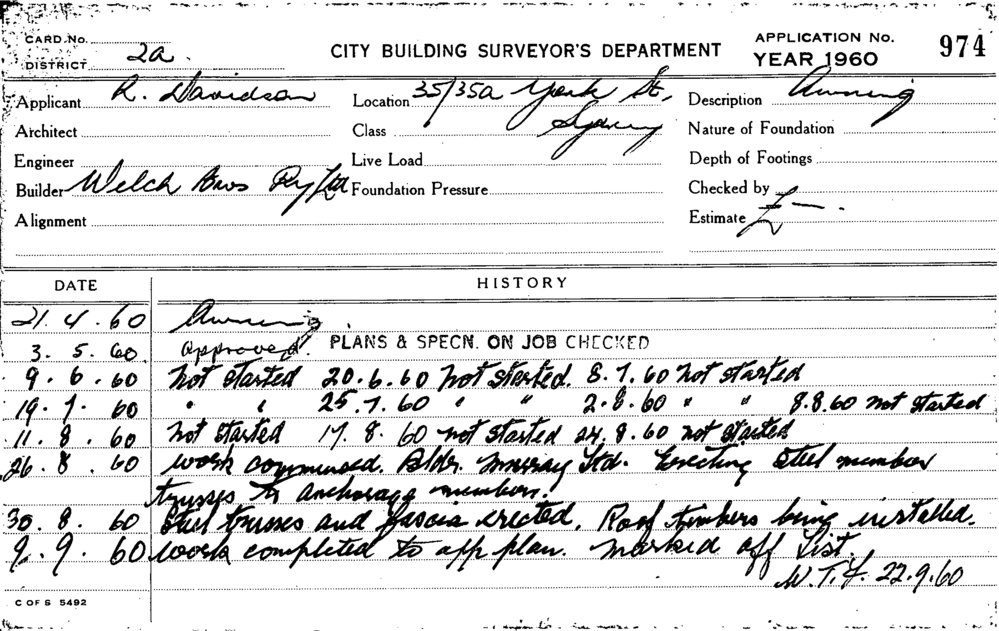 CARD No.
DISTRICT 2a.
CITY BUILDING SURVEYOR'S DEPARTMENT
APPLICATION No. 974
YEAR 1960
Applicant R. Davidson
Location 35/35a York St, Sydney
Description Awning
Architect
Class
Nature of Foundation
Engineer
Live Load
Depth of Footings
Builder Welch Bros Pty Ltd
Foundation Pressure
Checked by
Alignment
Estimate £ —
DATE HISTORY
21.4.60 Awning.
3.5.60 approved. PLANS & SPECN. ON JOB CHECKED
9.6.60 not started 20.6.60 not started. 8.7.60 not started
19.7.60 " " 25.7.60 " " 2.8.60 " " 8.8.60 not started
11.8.60 not started 17.8.60 not started 24.8.60 not started
26.8.60 work commenced. Bldr. Murray Ltd. Erecting steel member
trusses to anchorage members.
30.8.60 Steel trusses and fascia erected. Roof timbers being installed.
9.9.60 work completed to app plan. marked off List.
W.T.Y. 22.9.60
C OF S 5492